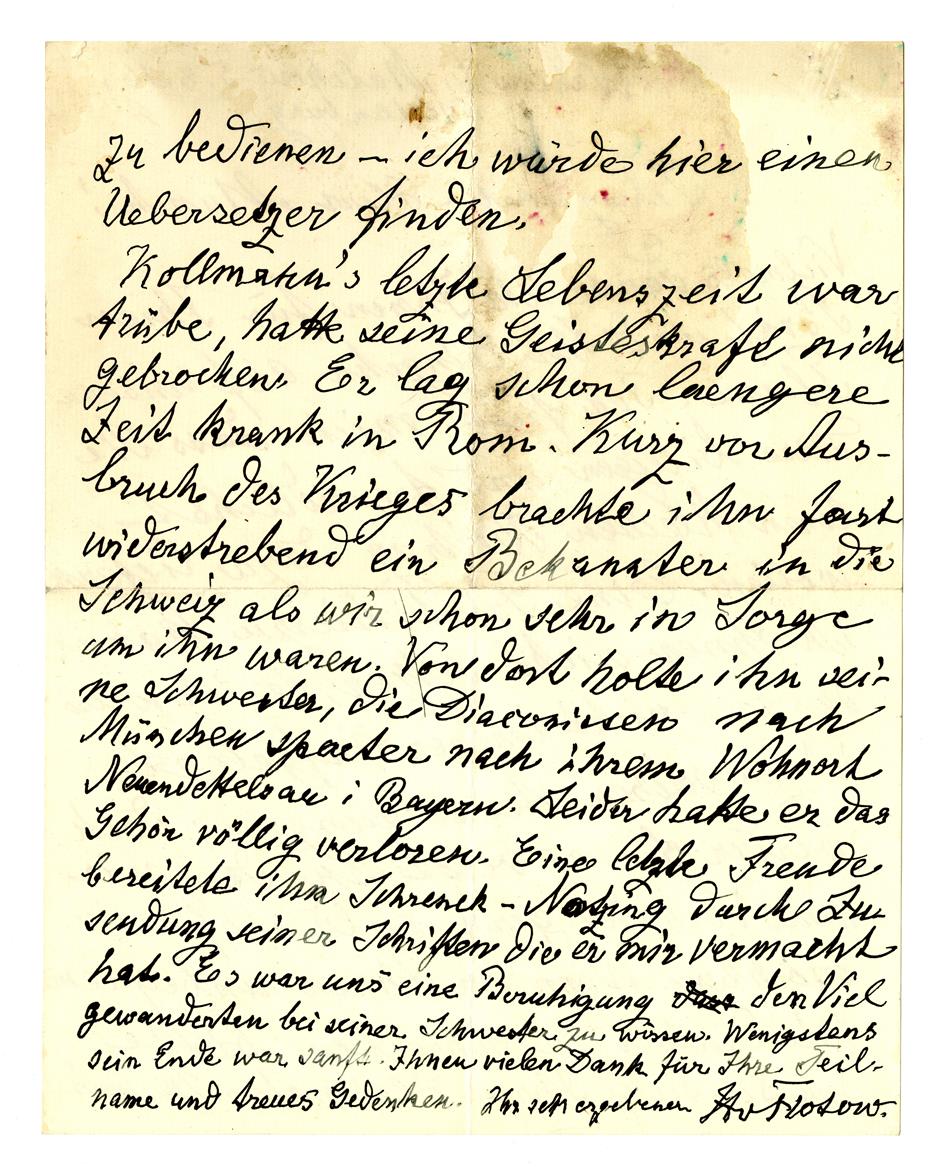 zu bedienen – ich würde hier einen
Uebersetzer finden.
Kollmann's letzte Lebenszeit war
trübe, hatte seine Geisteskraft nicht
gebrochen. Er lag schon laengere
Zeit krank in Rom. Kurz vor Aus-
bruch des Krieges brachte ihn fast
widerstrebend ein Bekannter in die
Schweiz als wir schon sehr in Sorge
um ihn waren. Von dort holte ihn sei-
ne Schwester, die Diaconissen nach
München spaeter nach ihrem Wohnort
Neuendettelsau i Bayern. Leider hatte er das
Gehör völlig verloren. Eine letzte Freude
bereitete ihm Schrenck-Notzing durch Zu-
sendung seiner Schriften die er mir vermacht
hat. Es war uns eine Beruhigung den Viel
gewanderten bei seiner Schwester zu wissen. Wenigstens
sein Ende war sanft. Ihnen vielen Dank für Ihre Teil-
name und treues Gedenken. Ihr sehr ergebener